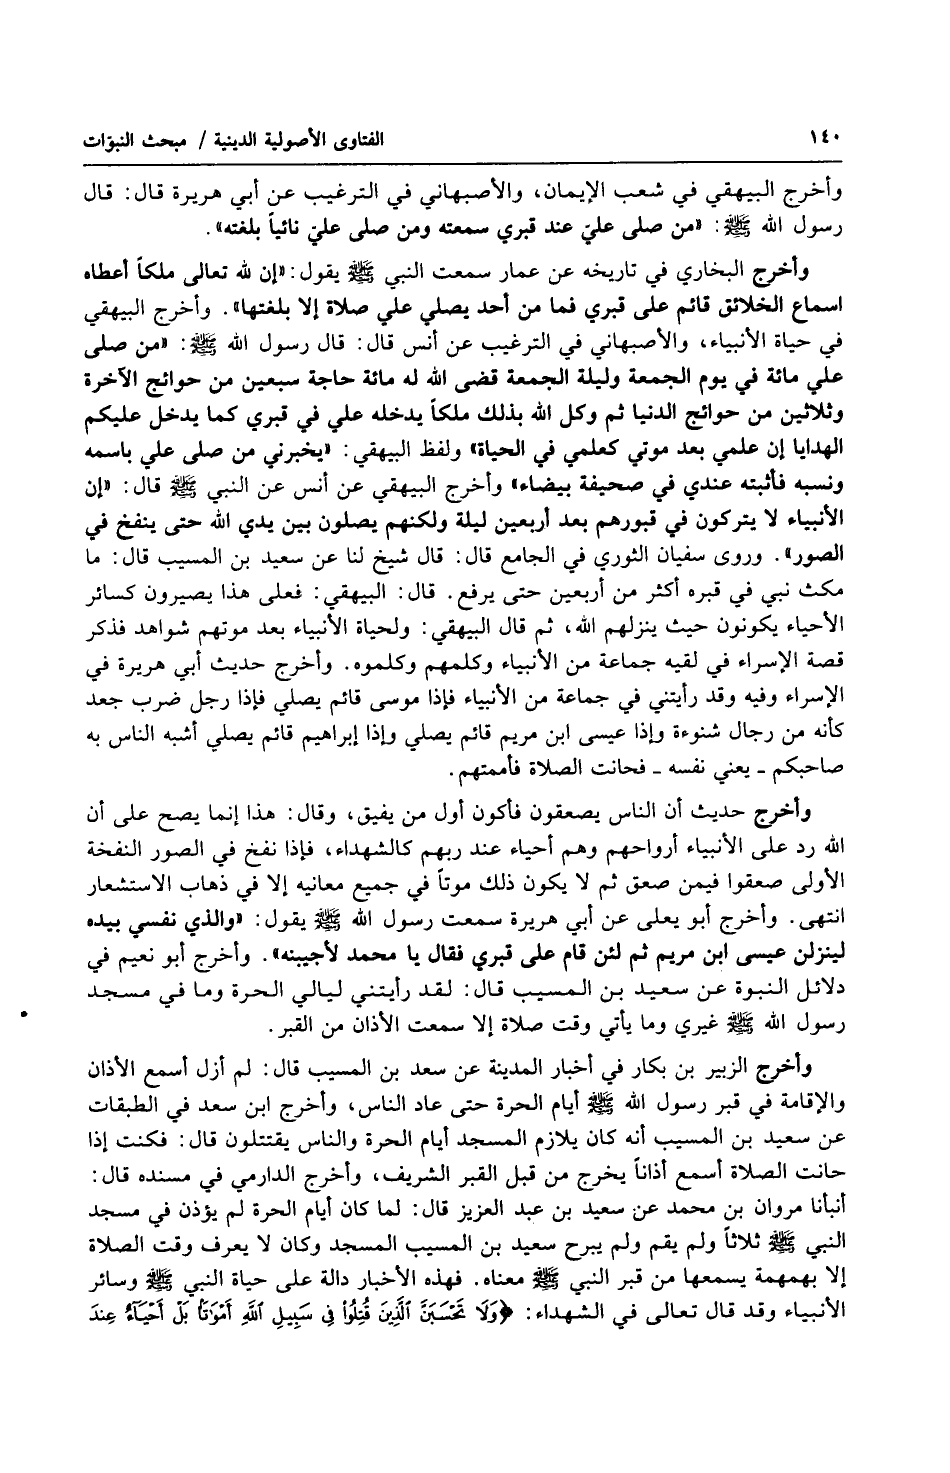 ١٤٠ الفتاوى الأصولية الدينية / مبحث النبوّات
وأخرج البيهقي في شعب الإيمان، والأصبهاني في الترغيب عن أبي هريرة قال: قال
رسول الله ﷺ: «من صلى عليّ عند قبري سمعته ومن صلى عليّ نائياً بلغته».
وأخرج البخاري في تاريخه عن عمار سمعت النبي ﷺ يقول: «إن لله تعالى ملكاً أعطاه
اسماع الخلائق قائم على قبري فما من أحد يصلي علي صلاة إلا بلغتها». وأخرج البيهقي
في حياة الأنبياء، والأصبهاني في الترغيب عن أنس قال: قال رسول الله ﷺ: «من صلى
علي مائة في يوم الجمعة وليلة الجمعة قضى الله له مائة حاجة سبعين من حوائج الآخرة
وثلاثين من حوائج الدنيا ثم وكل الله بذلك ملكاً يدخله علي في قبري كما يدخل عليكم
الهدايا إن علمي بعد موتي كعلمي في الحياة» ولفظ البيهقي: «يخبرني من صلى علي باسمه
ونسبه فأثبته عندي في صحيفة بيضاء» وأخرج البيهقي عن أنس عن النبي ﷺ قال: «إن
الأنبياء لا يتركون في قبورهم بعد أربعين ليلة ولكنهم يصلون بين يدي الله حتى ينفخ في
الصور». وروى سفيان الثوري في الجامع قال: قال شيخ لنا عن سعيد بن المسيب قال: ما
مكث نبي في قبره أكثر من أربعين حتى يرفع. قال: البيهقي: فعلى هذا يصيرون كسائر
الأحياء يكونون حيث ينزلهم الله، ثم قال البيهقي: ولحياة الأنبياء بعد موتهم شواهد فذكر
قصة الإسراء في لقيه جماعة من الأنبياء وكلمهم وكلموه. وأخرج حديث أبي هريرة في
الإسراء وفيه وقد رأيتني في جماعة من الأنبياء فإذا موسى قائم يصلي فإذا رجل ضرب جعد
كأنه من رجال شنوءة وإذا عيسى ابن مريم قائم يصلي وإذا إبراهيم قائم يصلي أشبه الناس به
صاحبكم ـ يعني نفسه ـ فحانت الصلاة فأممتهم.
وأخرج حديث أن الناس يصعقون فأكون أول من يفيق، وقال: هذا إنما يصح على أن
الله رد على الأنبياء أرواحهم وهم أحياء عند ربهم كالشهداء، فإذا نفخ في الصور النفخة
الأولى صعقوا فيمن صعق ثم لا يكون ذلك موتاً في جميع معانيه إلا في ذهاب الاستشعار
انتهى. وأخرج أبو يعلى عن أبي هريرة سمعت رسول الله ﷺ يقول: «والذي نفسي بيده
لينزلن عيسى ابن مريم ثم لئن قام على قبري فقال يا محمد لأجيبنه». وأخرج أبو نعيم في
دلائل النبوة عن سعيد بن المسيب قال: لقد رأيتني ليالي الحرة وما في مسجد
رسول الله ﷺ غيري وما يأتي وقت صلاة إلا سمعت الأذان من القبر.
وأخرج الزبير بن بكار في أخبار المدينة عن سعد بن المسيب قال: لم أزل أسمع الأذان
والإقامة في قبر رسول الله ﷺ أيام الحرة حتى عاد الناس، وأخرج ابن سعد في الطبقات
عن سعيد بن المسيب أنه كان يلازم المسجد أيام الحرة والناس يقتتلون قال: فكنت إذا
حانت الصلاة أسمع أذاناً يخرج من قبل القبر الشريف، وأخرج الدارمي في مسنده قال:
أنبأنا مروان بن محمد عن سعيد بن عبد العزيز قال: لما كان أيام الحرة لم يؤذن في مسجد
النبي ﷺ ثلاثاً ولم يقم ولم يبرح سعيد بن المسيب المسجد وكان لا يعرف وقت الصلاة
إلا بهمهمة يسمعها من قبر النبي ﷺ معناه. فهذه الأخبار دالة على حياة النبي ﷺ وسائر
الأنبياء وقد قال تعالى في الشهداء: ﴿وَلَا تَحْسَبَنَّ ٱلَّذِينَ قُتِلُوا۟ فِى سَبِيلِ ٱللَّهِ أَمْوَٰتًۢا بَلْ أَحْيَآءٌ عِندَ